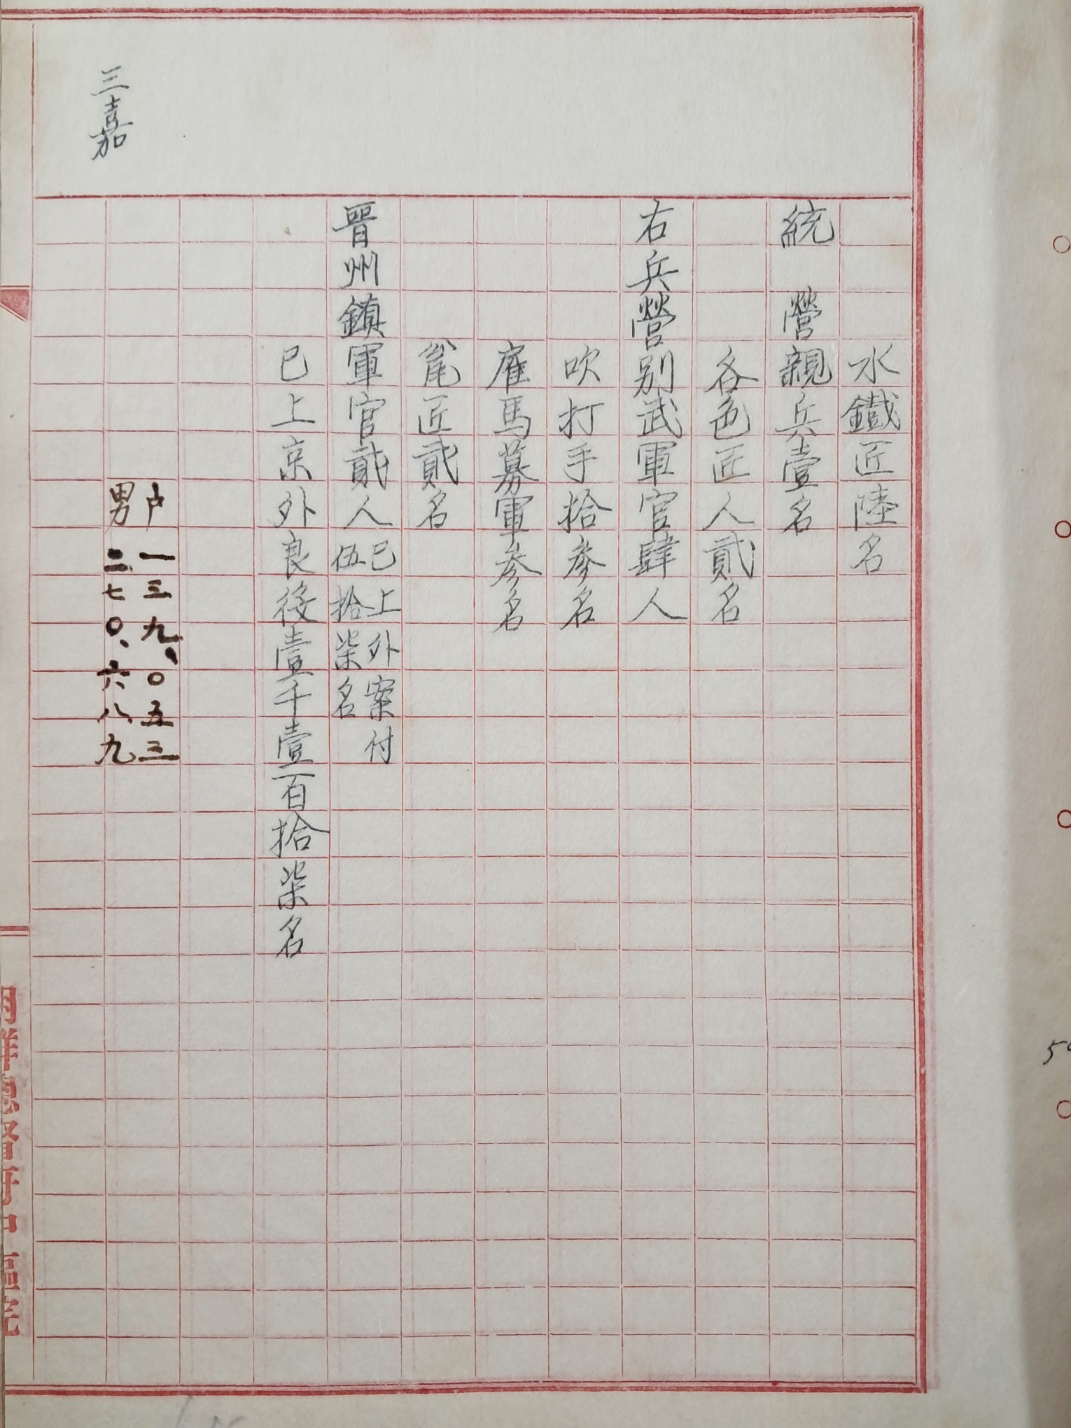 水鐵匠陸名
統 營親兵壹名
各色匠人貳名
右兵營别武軍官肆人
吹打手拾參名
雇馬募軍参名
瓮匠貳名
晋州鎮軍官貳人 已上外案付
伍拾柒名
已上京外良役壹千壹百拾柒名
户 一三九、〇五三
男 二七〇、六八九
三嘉
朝鮮總督府中樞院